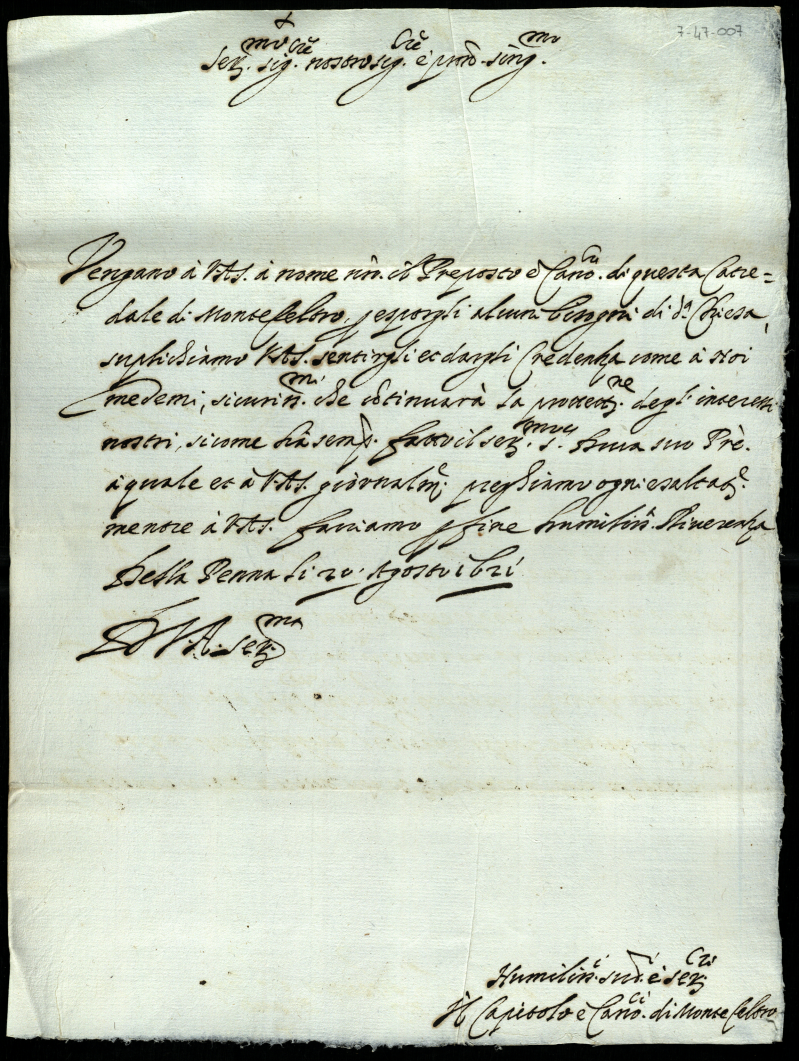 7-47-007
+
Ser.mo sig.re nostro sig.re e pron. sing.mo
Vengano à V.A.S. à nome nro. il Preposto e Cano.ci di questa Cate=
dale di Monte feltro, p esporgli alcuni bisogni di d.a Chiesa,
suplichiamo V.A.S. sentirgli et dargli Credenza come à Noi
medemi, sicuriss.mi che cõtinuarà la protteti.ne degl'interessi
nostri, si come hà semp. fatto il ser.mo s.r Duca suo Prè.
à quale et à V.A.S. giornalm. preghiamo ogni esaltat.e
mentre à V.A.S. facciamo p fine humiliss. Riverenza
Della Penna li 20 Agosto 1621
D V.A. Ser.ma
Humiliss.i sud.i e ser.ri
Il Capitolo e Cano.ci di Monte feltro